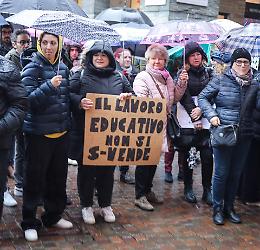 IL LAVORO
EDUCATIVO
NON SI
S-VENDE